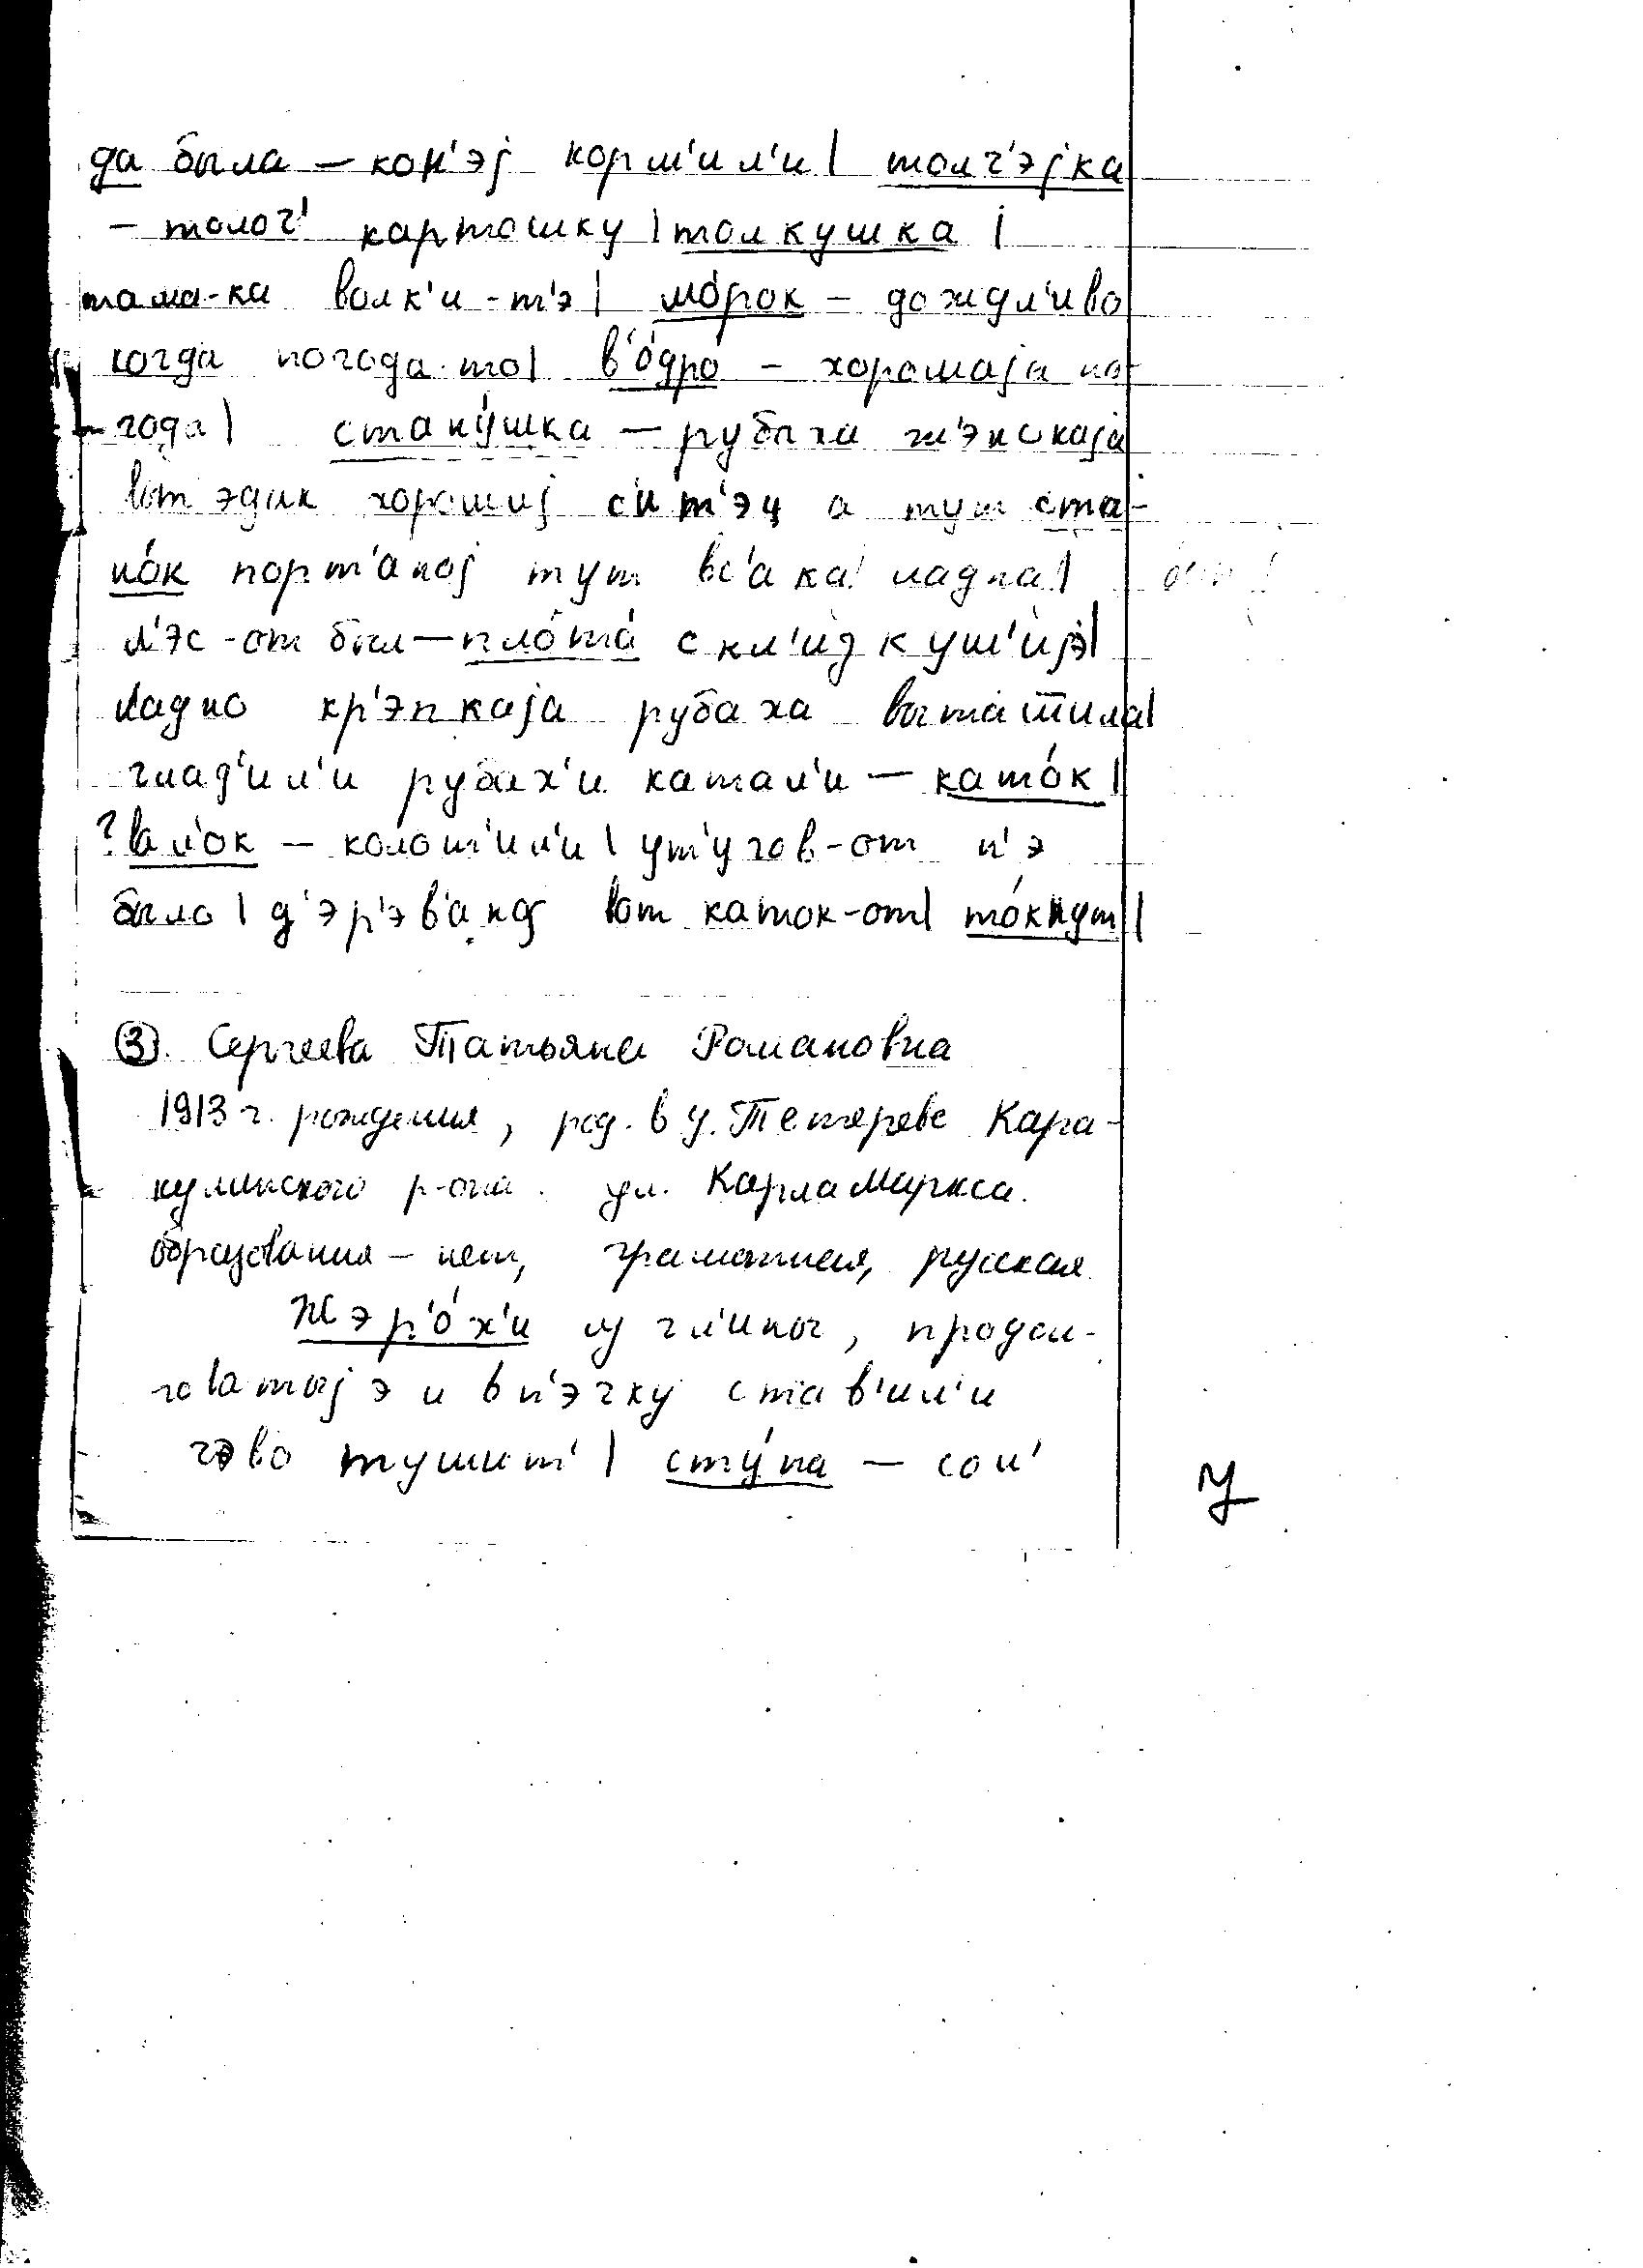 да была – кон'эј корм'ил'и | толч'эјка
– толоч' картошку | толкушка |
тама-ка волк'и-т'э | мо́рок – дождл'иво
когда погода-то | в'о́дро – хорошаја по-
года | стану́шка – рубаха ж'энскаја
вот эдак хорошиј сит'эц а тут ста-
но́к порт'аној тут вс'ака ладна |
л'эс-от был – плота́
ладно кр'эпкаја рубаха
глад'ил'и рубах'и катал'и – като́к |
? вал'ок – колот'ил'и | ут'угов-от н'э
было | вот каток-от | то́кнут |
③. Сергеева Татьяна Романовна
1913 г. рождения, род. в у. Тетереве Кара-
кулинского р-она. ул. Карла Маркса.
образования – нет, грамотная, русская.
Жэр'о́х'и из гл'ины, продол-
говатыјэ и в п'эчку став'ил'и
чэво тушит' | сту́па – сол'